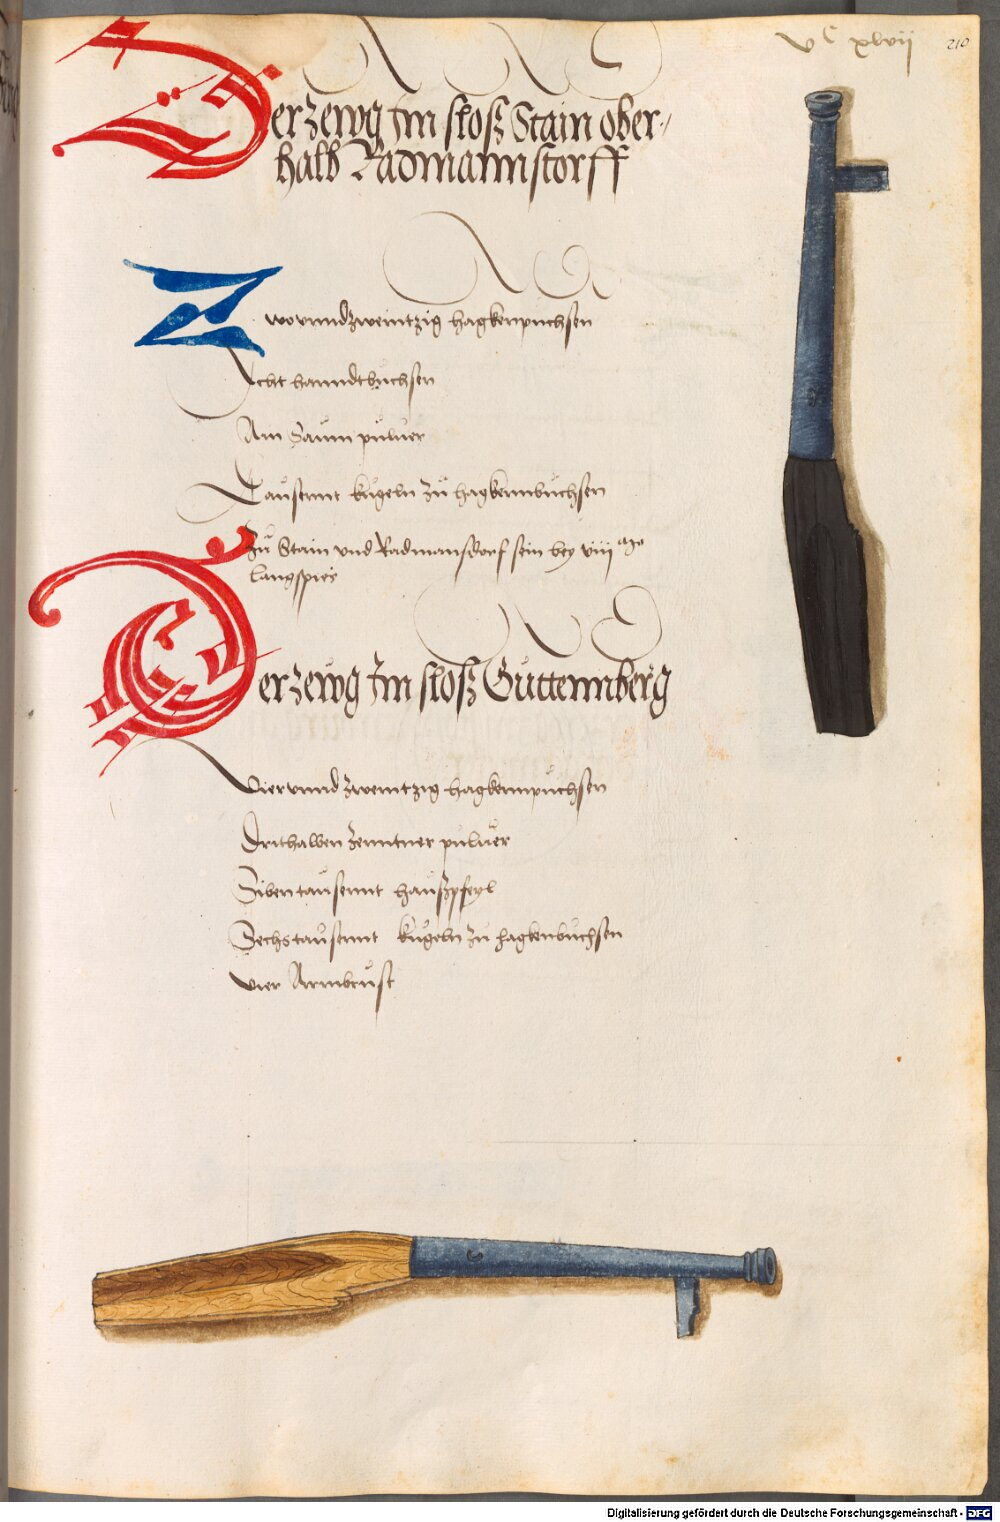 vᶜ xlvii
210
Der zewg Im sloß Stain ober-
halb Radmannstorff
Zwounndzweintzig hagkenpuchsen
Acht hanndtbuchsen
Ain Saum puluer
Tausennt kugeln zu hagkennbuchsen
Zu Stain vnd Radmansdorf sein bey viii
langspies
Der zewg Im sloß Guttemnberg
Vierunnd zweintzig hagkennpuchsen
Drithalben zenntner puluer
Sibentausennt haußpfeyl
Sechstausennt kugeln zu hagkenbuchsen
vier Armbrust
Digitalisierung gefördert durch die Deutsche Forschungsgemeinschaft - DFG